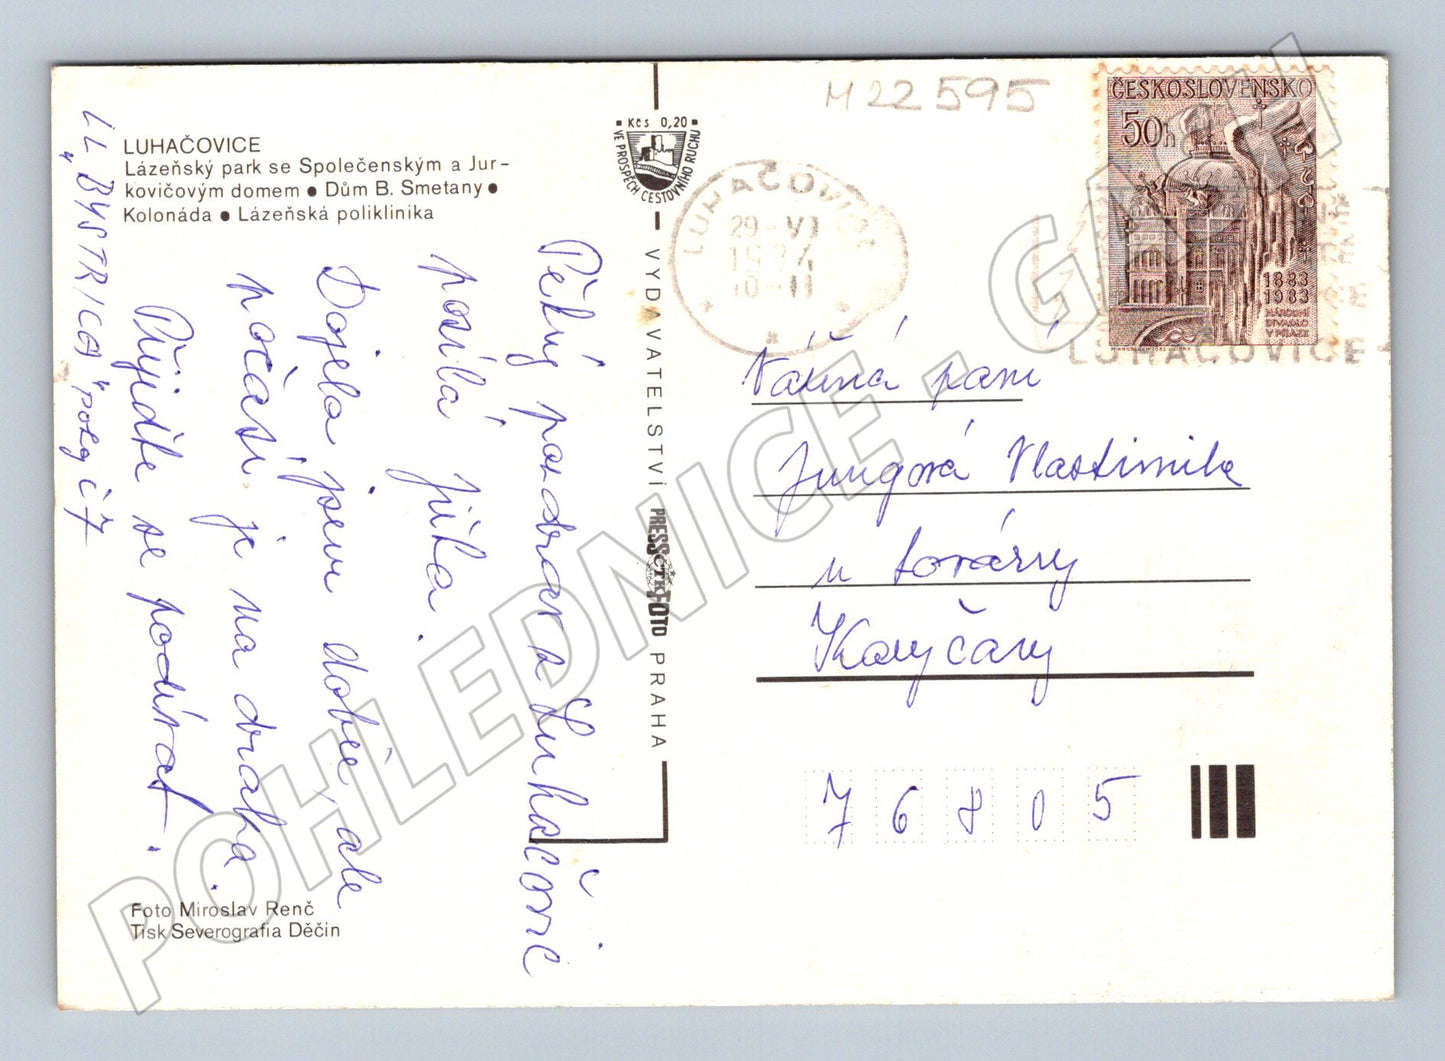 M 22595
LUHAČOVICE
Lázeňský park se Společenským a Jur-
kovičovým domem ● Dům B. Smetany ●
Kolonáda ● Lázeňská poliklinika
LL "BYSTRICA" pokoj č 7
Pěkný pozdrav z Luhačovic
posílá Jiřka.
Dojela jsem dobře, ale
počasí je na draka.
Přijďte se podívat.
Foto Miroslav Renč
Tisk Severografia Děčín
Kčs 0,20
VE PROSPĚCH CESTOVNÍHO RUCHU
VYDAVATELSTVÍ PRESSFOTO PRAHA
ČTK
LUHAČOVICE
29-VI
10-11
ČESKOSLOVENSKO
50h
1883
1983
NÁRODNÍ
DIVADLO
V PRAZE
LUHAČOVICE
Vážená paní
Jungová Vlastimila
u továrny
Koryčany
76805
POHLEDNICE - GARCH